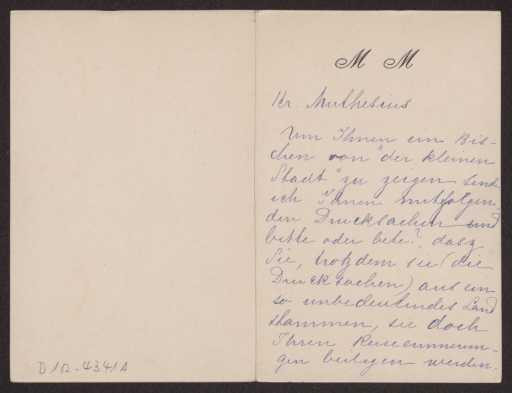 M M
Hr. Muthesius
Um Ihnen ein Bis-
chen von "der kleinen
Stadt" zu zeigen sende
ich Ihnen mitfolgen-
den Drucksachen und
bitte oder bete? dasz
Sie, trotzdem sie (die
Drucksachen) aus ein
so unbedeutendes Land
stammen, sie doch
Ihren Reiseerinnerun-
gen beilegen werden.
D 102-4341 A